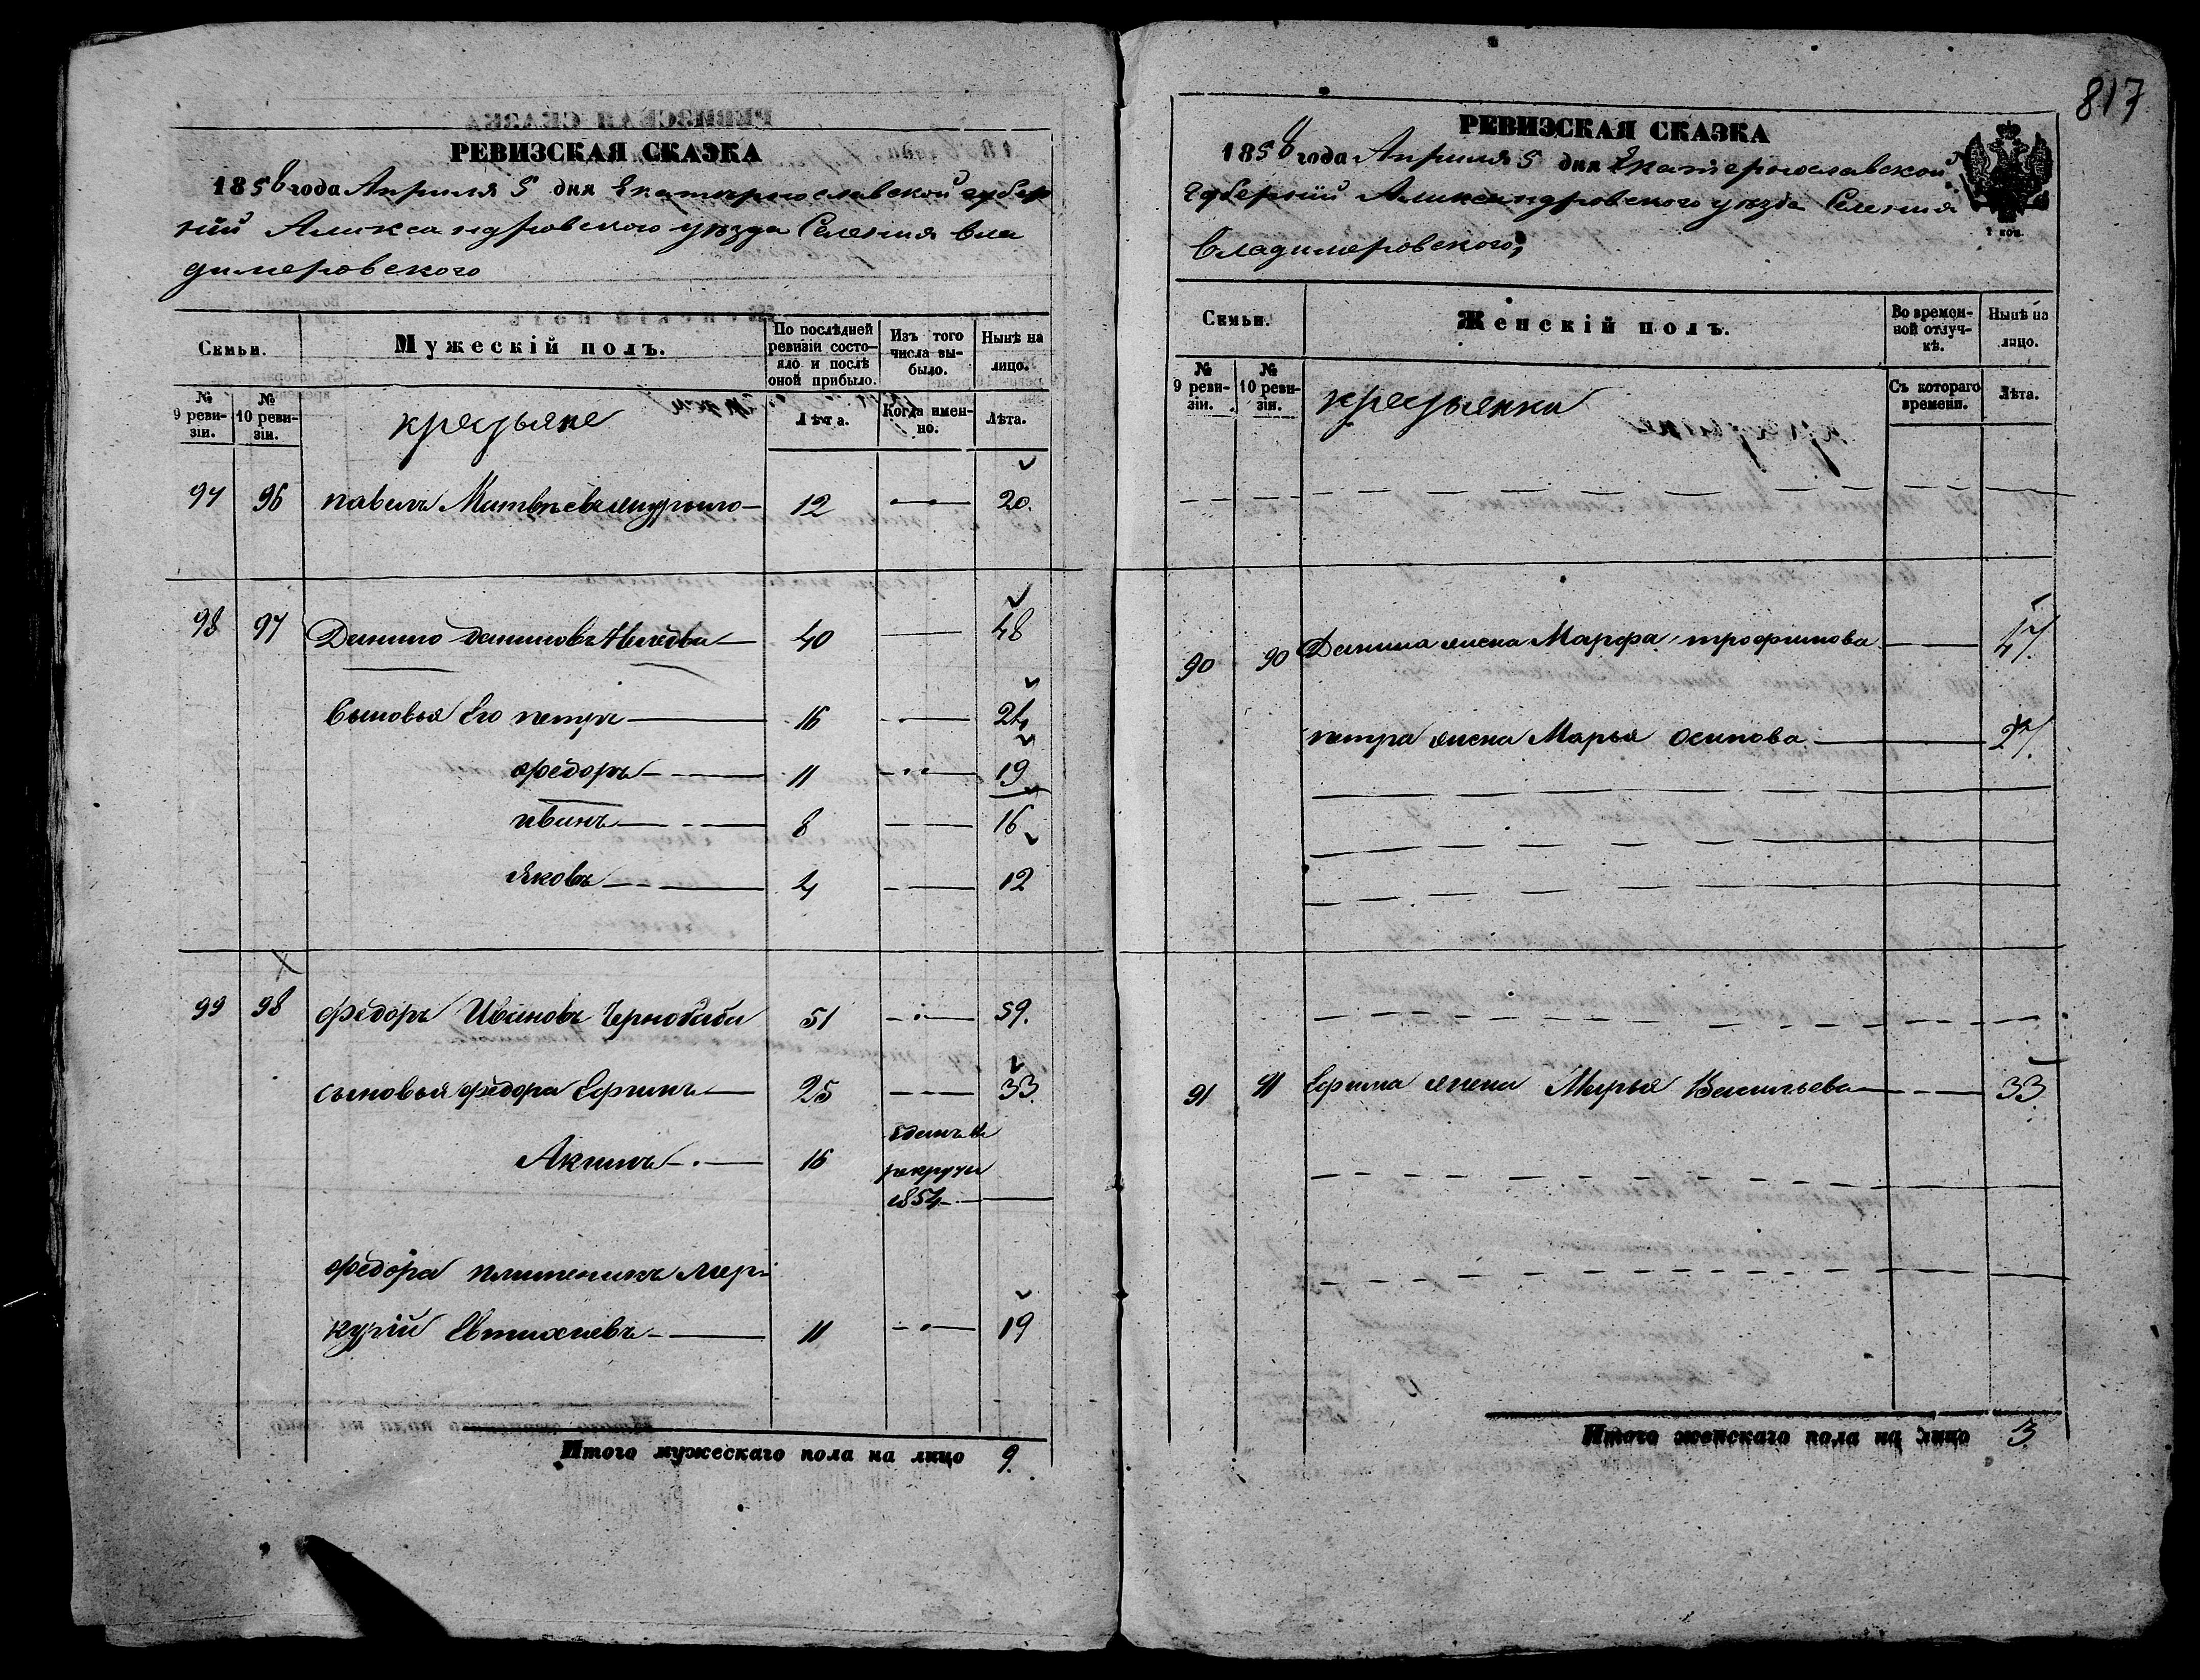 817
РЕВИЗСКАЯ СКАЗКА
1858 года Апреля 5 дня Екатеринославской губер
ній Александровского уезда Селения Вла
димеровского
Семьи.
Мужескій полъ.
По послѣдней ревизіи состо-
яло и послѣ
оной прибыло.
Изъ того
числа вы-
было.
Нынѣ на
лицо.
№
9 реви-
зіи.
№
10 реви-
зіи.
крестьяне
Лѣта.
Когда имен-
но.
Лѣта.
97 96 павелъ 12 20.
98 97 Данило даниловъ 40 48
Сыновья Его петръ 16 24
федоръ 11 19
иванъ 8 16
Яковъ 4 12
99 98 федоръ Ивановъ Чернобаби 51 59.
сыновья федора Ефимъ 25 33
Акимъ 16 зданъ в
рекруты
1854
федора племеникъ Мер-
курій Евтихиевъ 11 19
Итого мужескаго пола на лицо 9.
РЕВИЗСКАЯ СКАЗКА
1858 года Апреля 5 дня Екатеринославской
Губерній Александровского уезда Селения
Владимеровского
Семьи.
Женскій полъ.
Во времен-
ной отлуч-
кѣ.
Нынѣ на
лицо.
№
9 реви-
зіи.
№
10 реви-
зіи.
крестьянки
Съ котораго
времени.
Лѣта.
90 90 Данила жена Марфа трофимова 47.
петра жена Марья осипова 27.
91 91 Ефима жена Марья Васильева 33
Итого женскаго пола на лицо 3